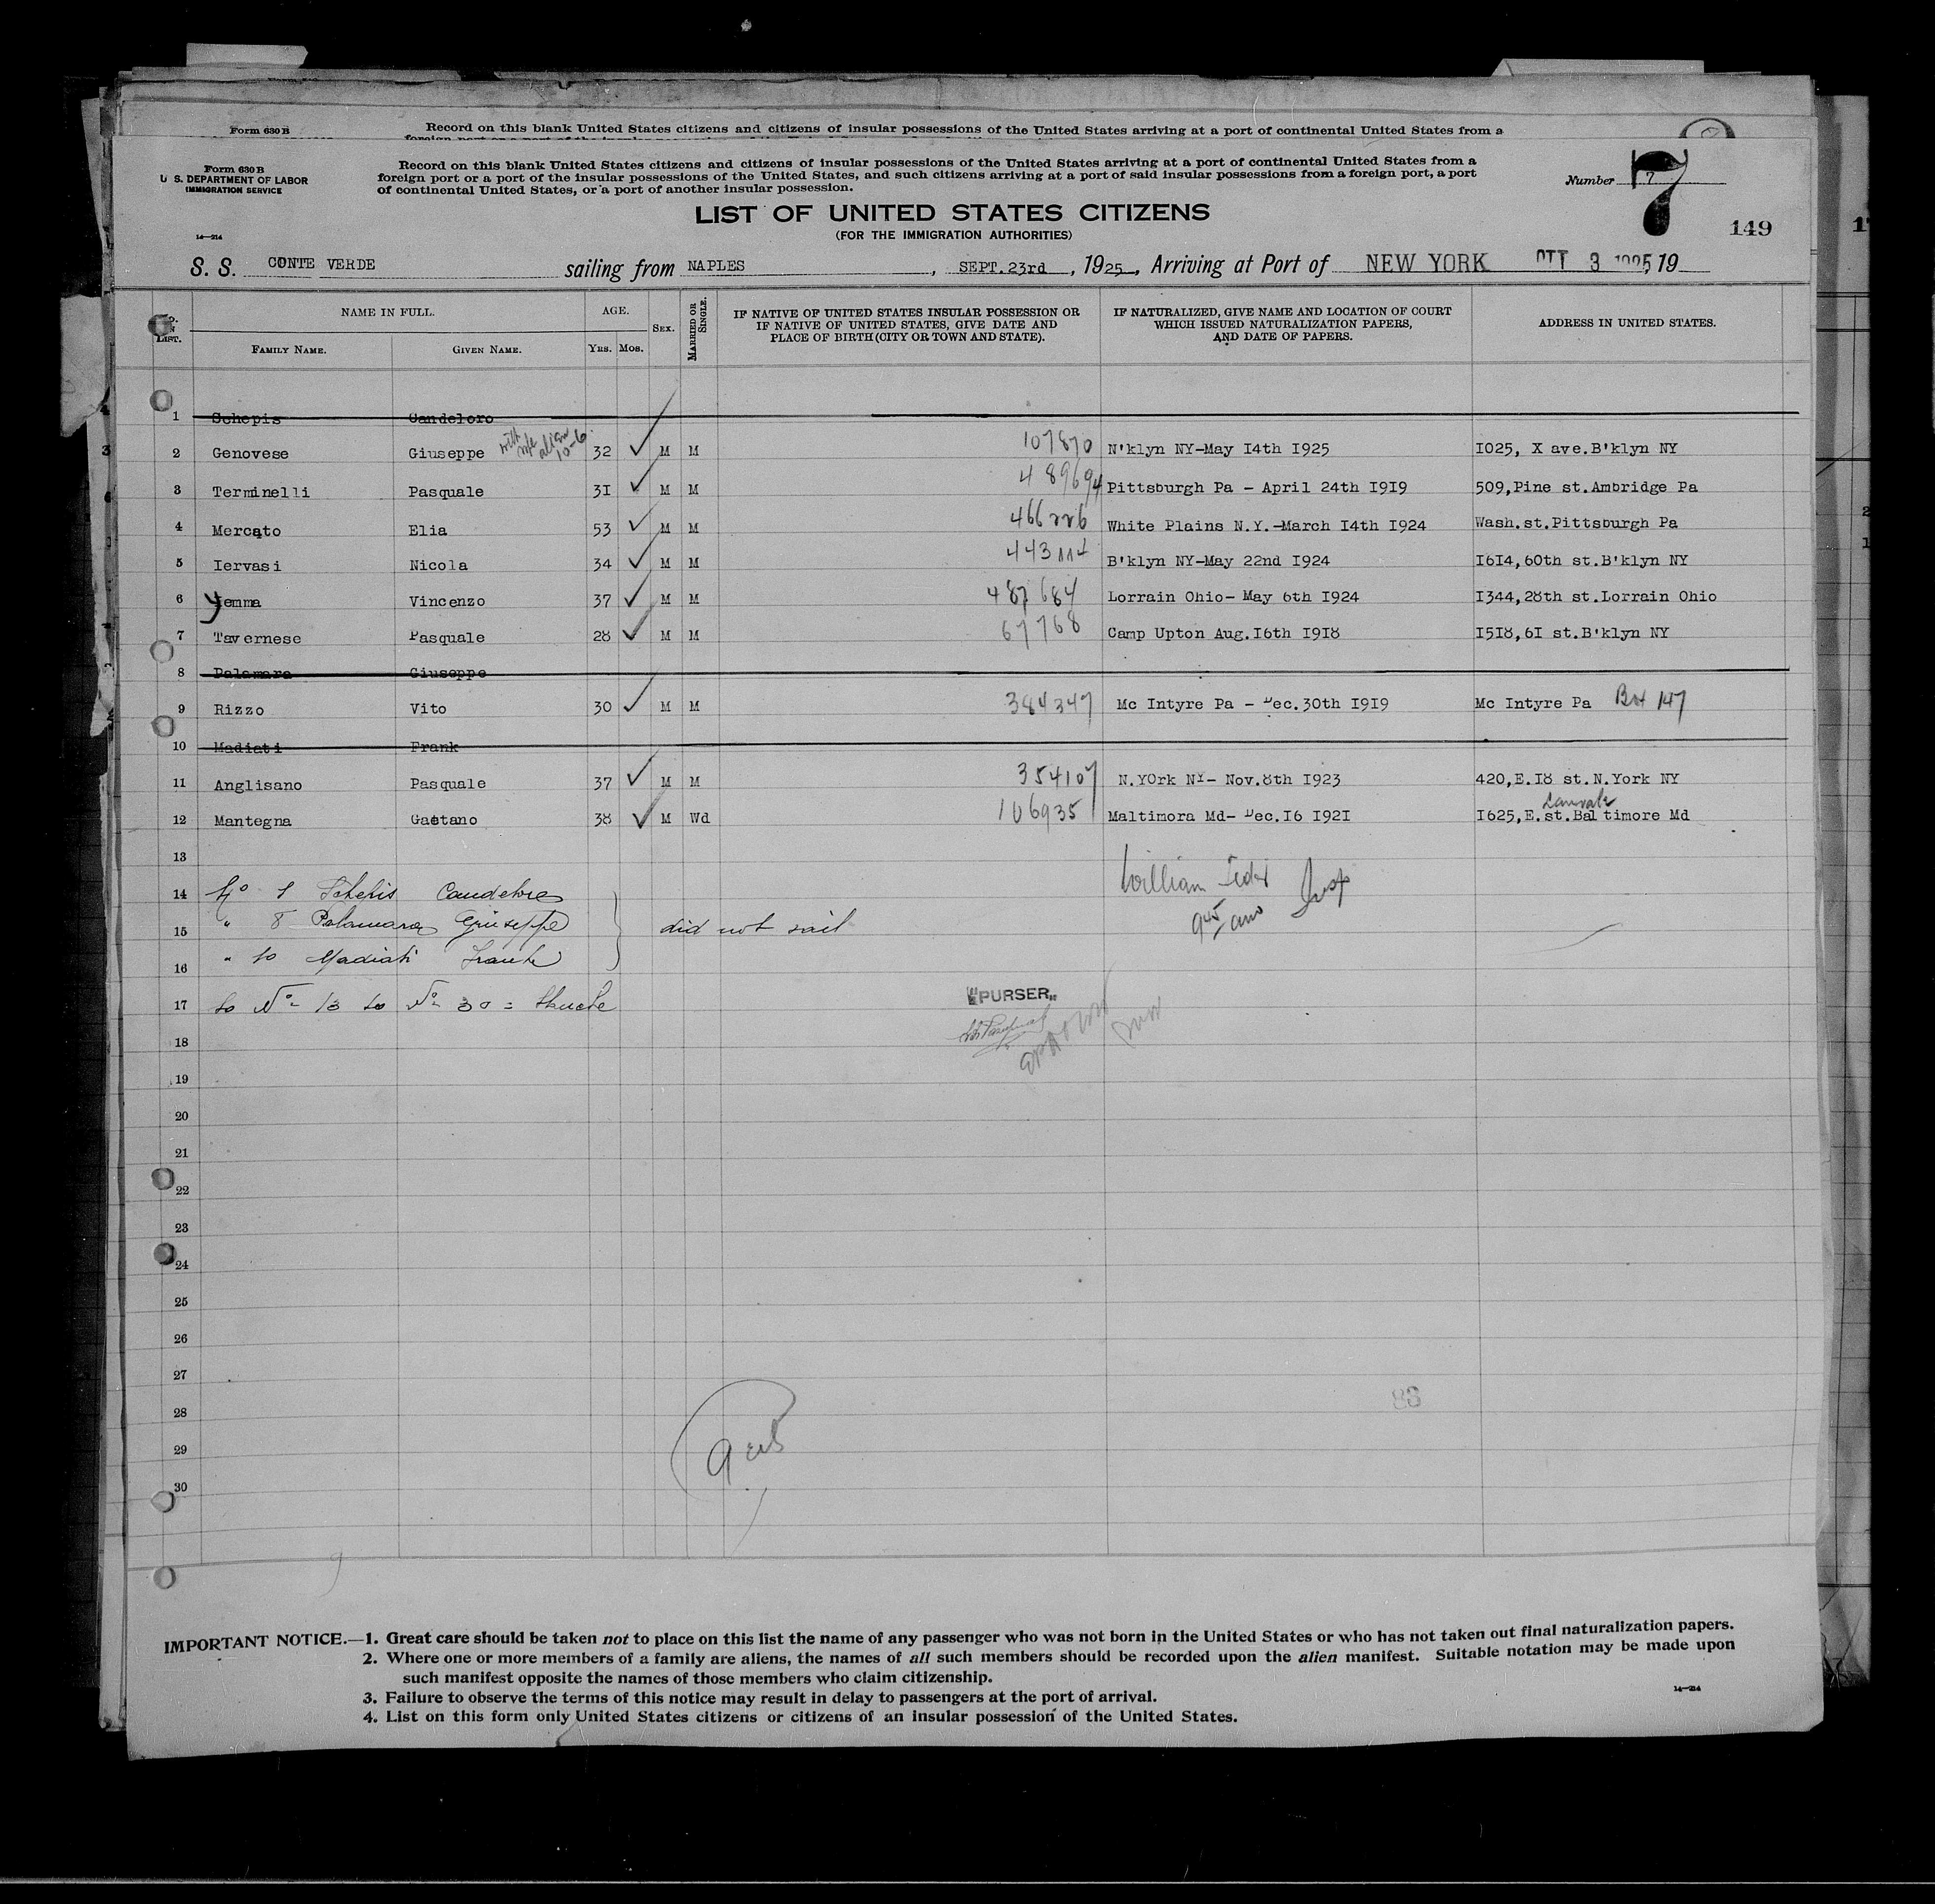 Form 630 B
Record on this blank United States citizens and citizens of insular possessions of the United States arriving at a port of continental United States from a
Form 630 B
U S. DEPARTMENT OF LABOR
IMMIGRATION SERVICE
Record on this blank United States citizens and citizens of insular possessions of the United States arriving at a port of continental United States from a
foreign port or a port of the insular possessions of the United States, and such citizens arriving at a port of said insular possessions from a foreign port, a port
of continental United States, or a port of another insular possession.
Number 7
7
149
LIST OF UNITED STATES CITIZENS
(FOR THE IMMIGRATION AUTHORITIES)
14—214
S. S. CONTE VERDE sailing from NAPLES, SEPT.23rd, 1925, Arriving at Port of NEW YORK OTT 3 1925, 19
NO. ON LIST. NAME IN FULL. AGE. SEX. MARRIED OR SINGLE. IF NATIVE OF UNITED STATES INSULAR POSSESSION OR IF NATIVE OF UNITED STATES, GIVE DATE AND PLACE OF BIRTH (CITY OR TOWN AND STATE). IF NATURALIZED, GIVE NAME AND LOCATION OF COURT WHICH ISSUED NATURALIZATION PAPERS, AND DATE OF PAPERS. ADDRESS IN UNITED STATES.
FAMILY NAME. GIVEN NAME. YRS. MOS.
1 Schepis Candeloro
2 Genovese Giuseppe with wife alien 10-6 32 M M 107870 N'klyn NY-May I4th I925 I025, X ave.B'klyn NY
3 Terminelli Pasquale 3I M M 489694 Pittsburgh Pa - April 24th I9I9 509,Pine st.Ambridge Pa
4 Mercato Elia 53 M M 466226 White Plains N.Y.-March I4th I924 Wash.st.Pittsburgh Pa
5 Iervasi Nicola 34 M M 443114 B'klyn NY-May 22nd I924 I6I4,60th st.B'klyn NY
6 Yemma Vincenzo 37 M M 487684 Lorrain Ohio- May 6th I924 I344,28th st.Lorrain Ohio
7 Tavernese Pasquale 28 M M 67768 Camp Upton Aug.I6th I9I8 I5I8,6I st.B'klyn NY
8 Palamara Giuseppe
9 Rizzo Vito 30 M M 384347 Mc Intyre Pa - Dec.30th I9I9 Mc Intyre Pa Box 147
10 Madiati Frank
11 Anglisano Pasquale 37 M M 354107 N.YOrk NY- Nov.8th I923 420,E.I8 st.N.York NY
12 Mantegna Gaetano 38 M Wd 106935 Maltimora Md- Dec.I6 I92I I625,E. Lanvale st.Baltimore Md
13
14 No 1 Schepis Candeloro
15 " 8 Palamara Giuseppe did not sail
16 " 10 Madiati Frank
17 to No 13 to No 30 =
William Insp
PURSER
18
19
20
21
22
23
24
25
26
27
28
83
29
30
IMPORTANT NOTICE.—1. Great care should be taken not to place on this list the name of any passenger who was not born in the United States or who has not taken out final naturalization papers.
2. Where one or more members of a family are aliens, the names of all such members should be recorded upon the alien manifest. Suitable notation may be made upon
such manifest opposite the names of those members who claim citizenship.
3. Failure to observe the terms of this notice may result in delay to passengers at the port of arrival.
14—214
4. List on this form only United States citizens or citizens of an insular possession of the United States.